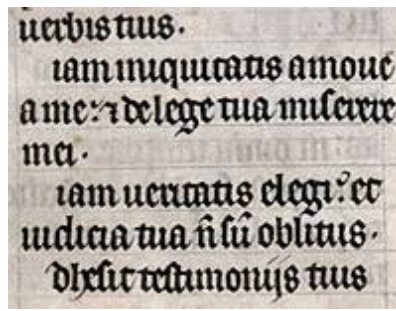 uerbis tuis.
iam iniquitatis amoue
a me: ⁊ de lege tua miserere
mei.
iam ueritatis elegi: et
iudicia tua n̄ sū oblitus.
dhesit testimonijs tuis